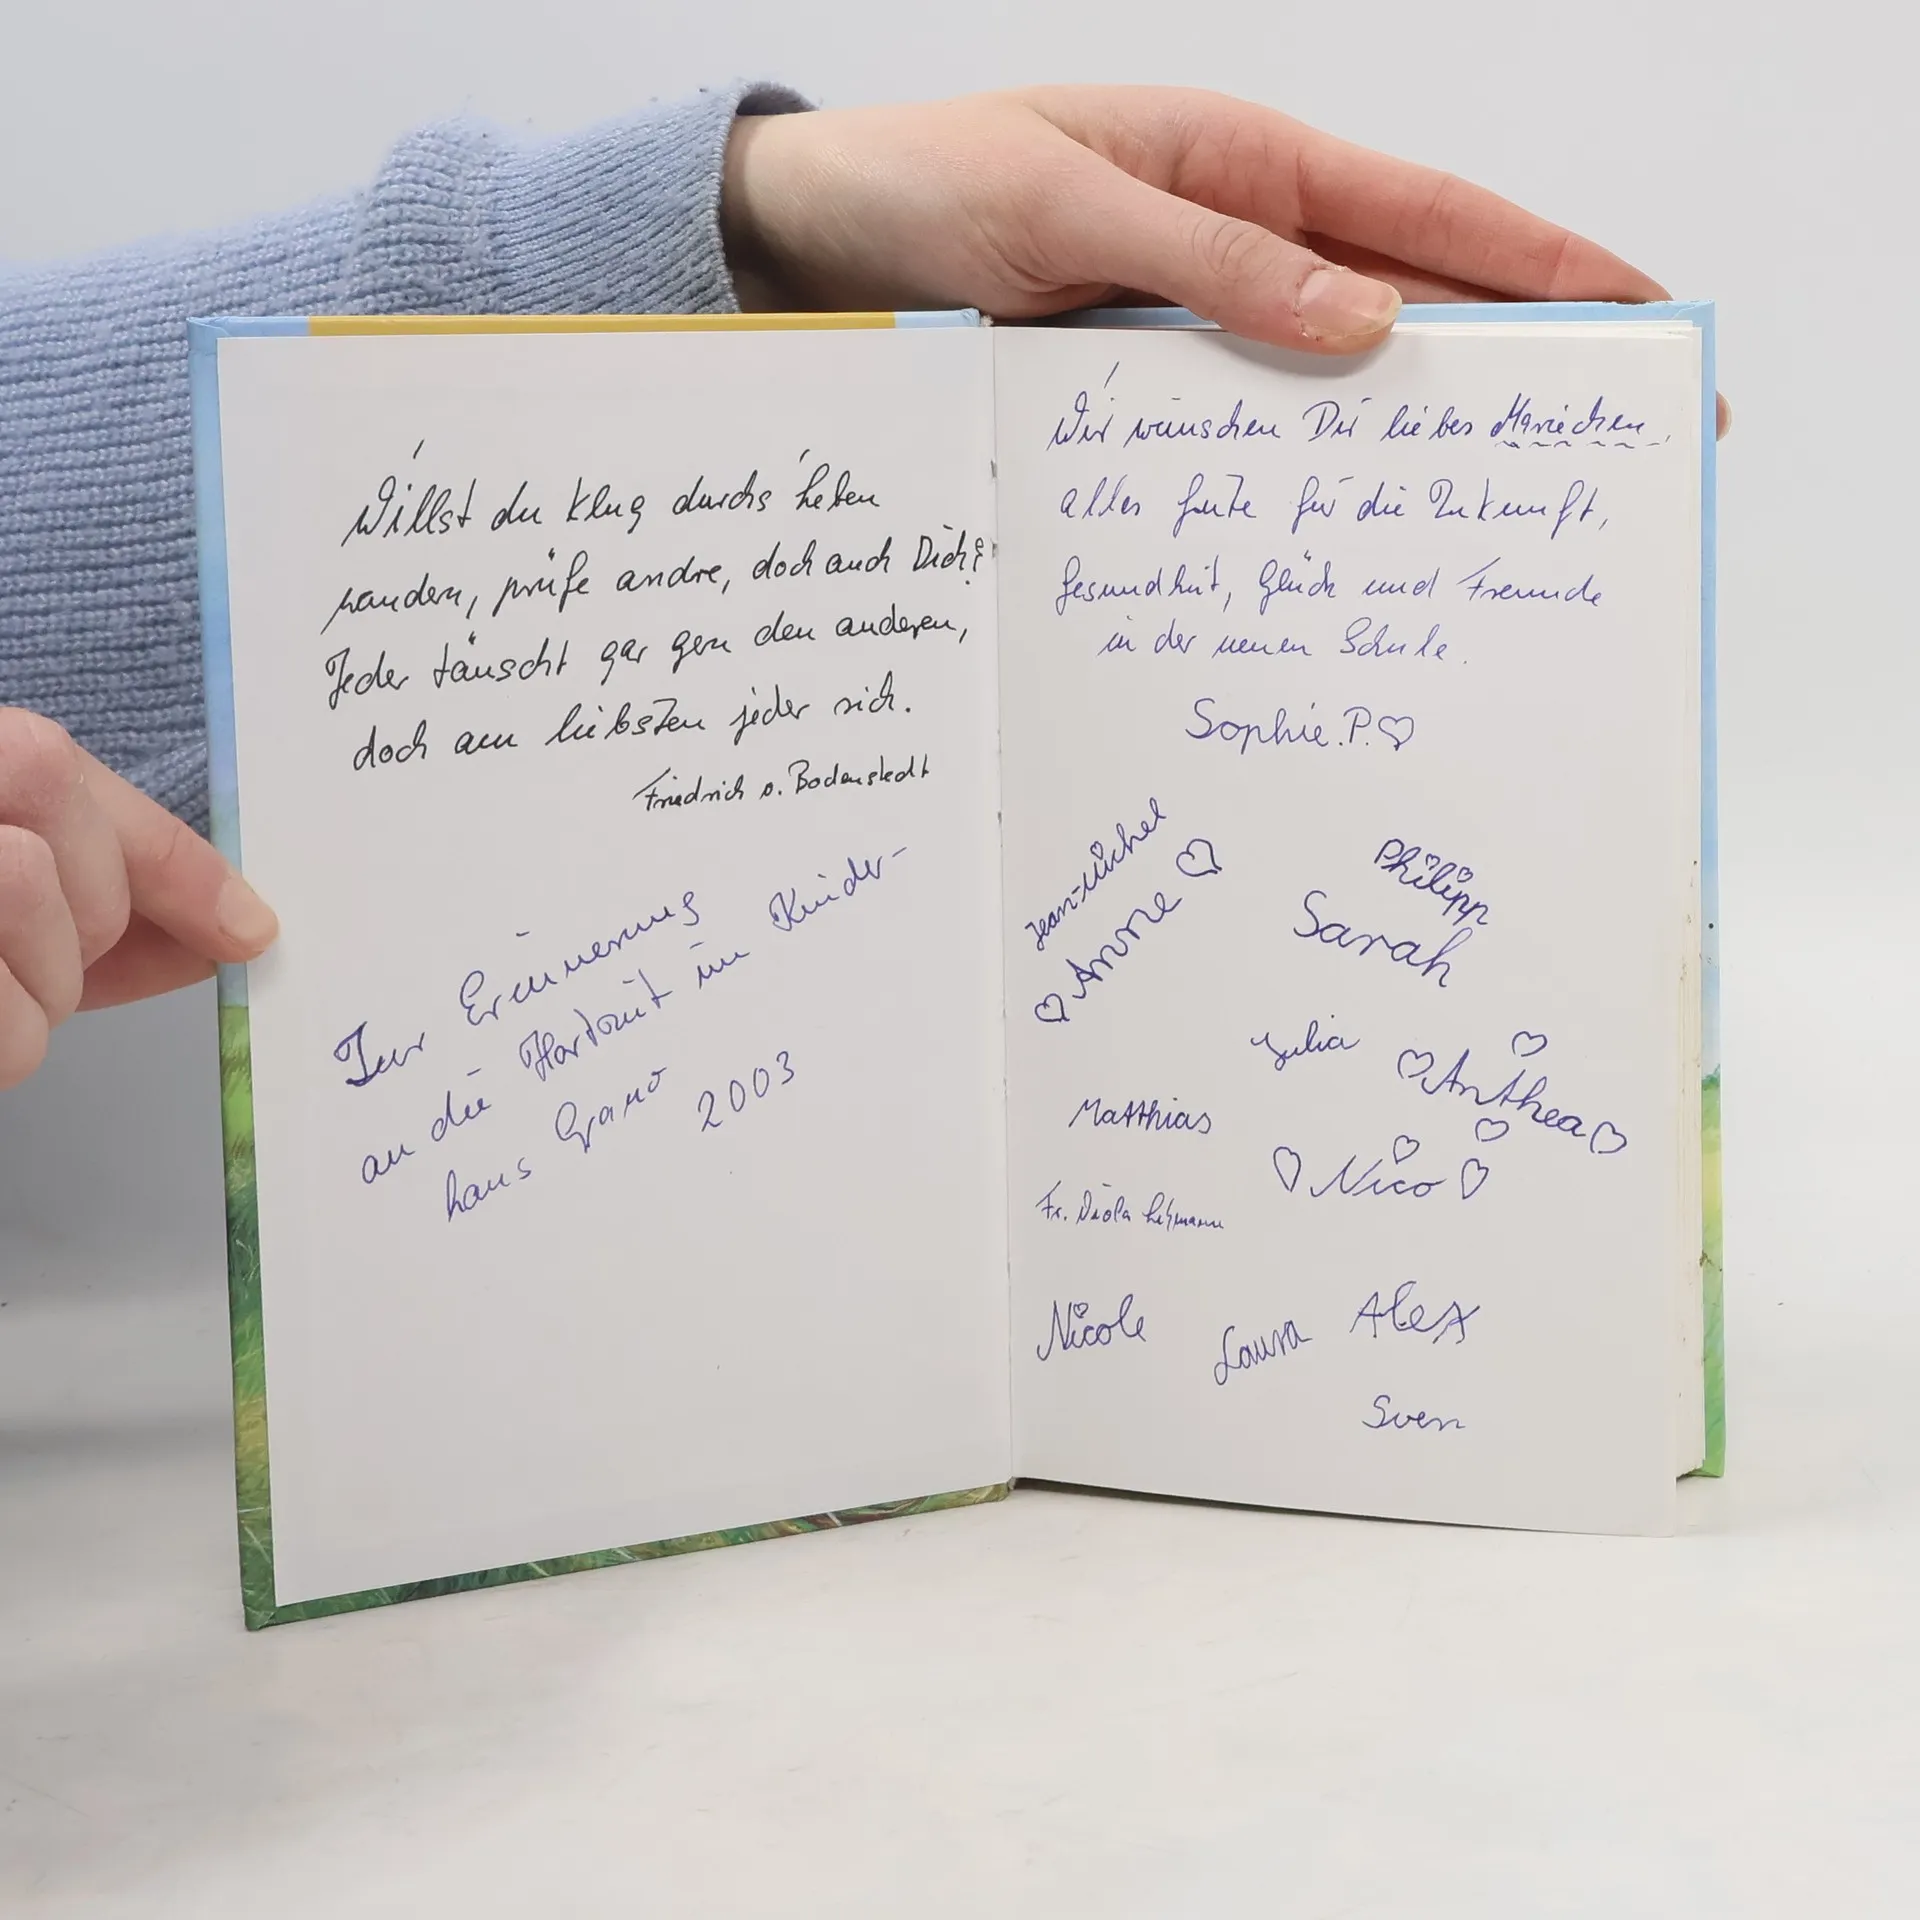 Willst du klug durchs Leben
wandern, prüfe andre, doch auch Dich!
Jeder täuscht gar gern den anderen,
doch am liebsten jeder sich.
Friedrich v. Bodenstedt
Zur Erinnerung
an die Hortzeit im Kinder-
haus
2003
Wir wünschen Dir liebes Mariechen,
alles Gute für die Zukunft,
Gesundheit, Glück und Freunde
in der neuen Schule.
Sophie.P.
Jean-Michel
Anne
Philipp
Sarah
Julia
Anthea
Matthias
Nico
Fr. Viola
Nicole
Laura
Alex
Sven